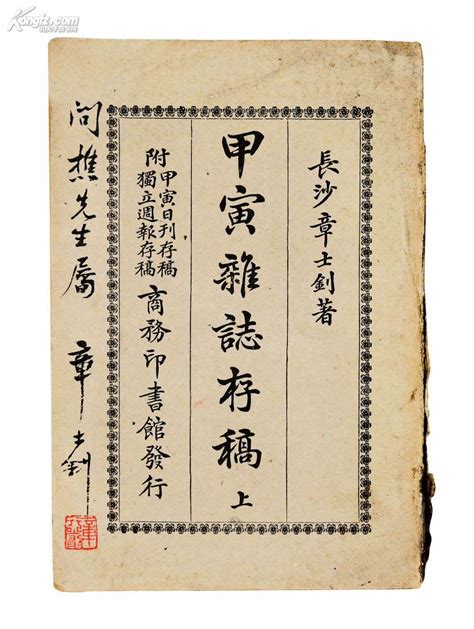 Kongfz.com
長沙章士釗著
甲寅雜誌存稿 上
附甲寅日刊存稿
獨立週報存稿
商務印書館發行
問樵先生屬
章士釗